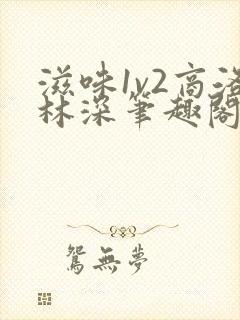 滋味1v2高洛
林深笔趣阁
鸳無夢